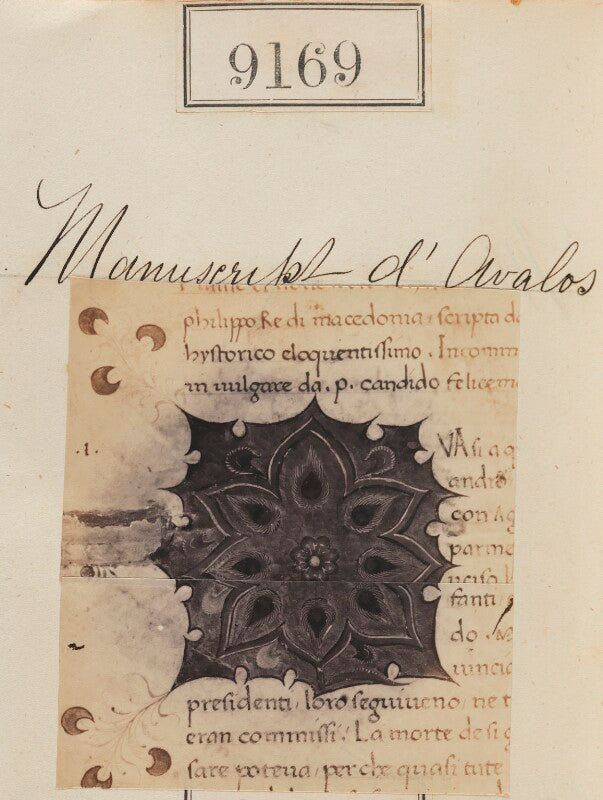 9169
Manuscript d' Avalos
philippo Re di macedonia scripta da
hystorico eloquentissimo. Incomm
in vulgare da. p. candido felicem
.1.
VA si a q
andro
con
parme
ucisa l
fanti
do
uincia
presidenti loro seguiueno ne t
eran commissi. La morte de si g
sare poteua per che quasi tute